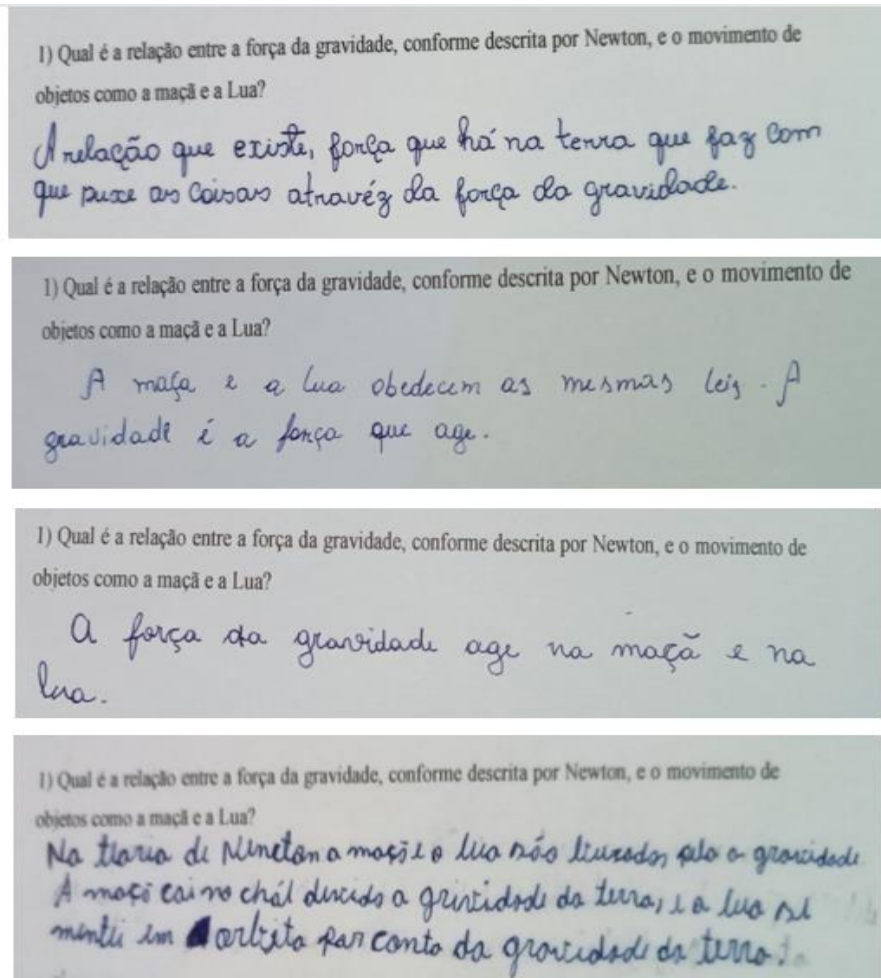 1) Qual é a relação entre a força da gravidade, conforme descrita por Newton, e o movimento de
objetos como a maçã e a Lua?
A relação que existe, força que há na terra que faz com
que puxe as coisas atravéz da força da gravidade.
1) Qual é a relação entre a força da gravidade, conforme descrita por Newton, e o movimento de
objetos como a maçã e a Lua?
A maça e a lua obedecem as mesmas leis. A
gravidade é a força que age.
1) Qual é a relação entre a força da gravidade, conforme descrita por Newton, e o movimento de
objetos como a maçã e a Lua?
A força da gravidade age na maçã e na
lua.
1) Qual é a relação entre a força da gravidade, conforme descrita por Newton, e o movimento de
objetos como a maçã e a Lua?
Na de a e a lua são a gravidade
A cai no a da terra, e a lua se
em orbita por conta da gravidade da terra.